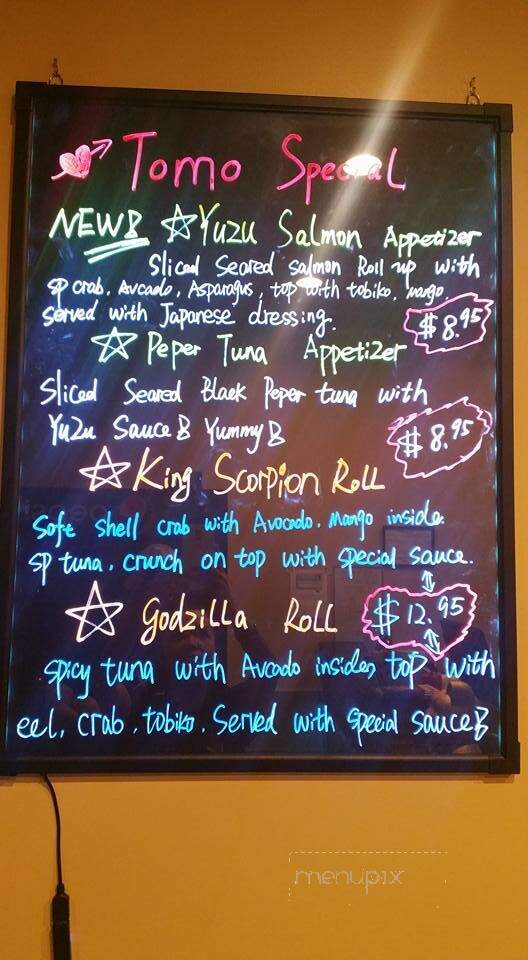 Tomo Special
NEW!! Yuzu Salmon Appetizer
Sliced Seared salmon Roll up with
sp crab, Avcado, Asparagus, top with tobiko, mango
served with Japanese dressing. $8.95
Peper Tuna Appetizer
Sliced Seared Black Peper tuna with
Yuzu Sauce!! Yummy!! $8.95
King Scorpion Roll
Soft shell crab with Avocado, Mango inside.
sp tuna, crunch on top with special sauce.
Godzilla Roll $12.95
spicy tuna with Avcado inside, top with
eel, crab, tobiko. Served with special sauce!!
menupix